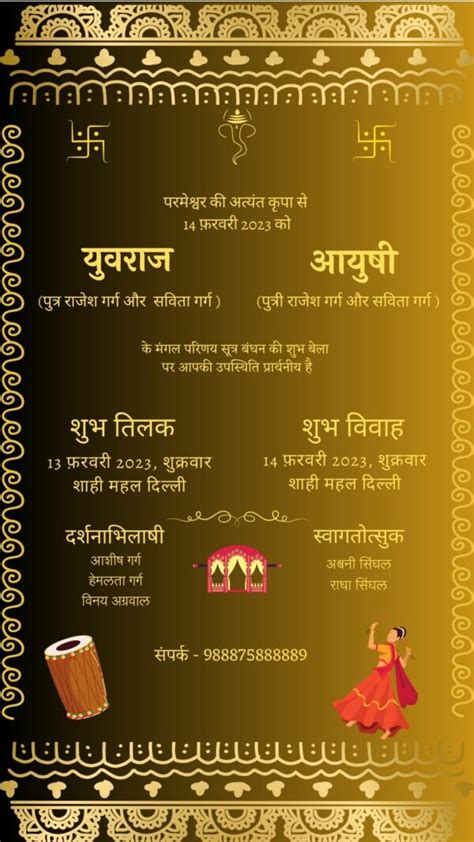 परमेश्वर की अत्यंत कृपा से
14 फ़रवरी 2023 को
युवराज
(पुत्र राजेश गर्ग और सविता गर्ग )
आयुषी
(पुत्री राजेश गर्ग और सविता गर्ग )
के मंगल परिणय सूत्र बंधन की शुभ बेला
पर आपकी उपस्थिति प्रार्थनीय है
शुभ तिलक
13 फ़रवरी 2023, शुक्रवार
शाही महल दिल्ली
शुभ विवाह
14 फ़रवरी 2023, शुक्रवार
शाही महल दिल्ली
दर्शनाभिलाषी
आशीष गर्ग
हेमलता गर्ग
विनय अग्रवाल
स्वागतोत्सुक
अश्वनी सिंघल
राधा सिंघल
संपर्क - 988875888889